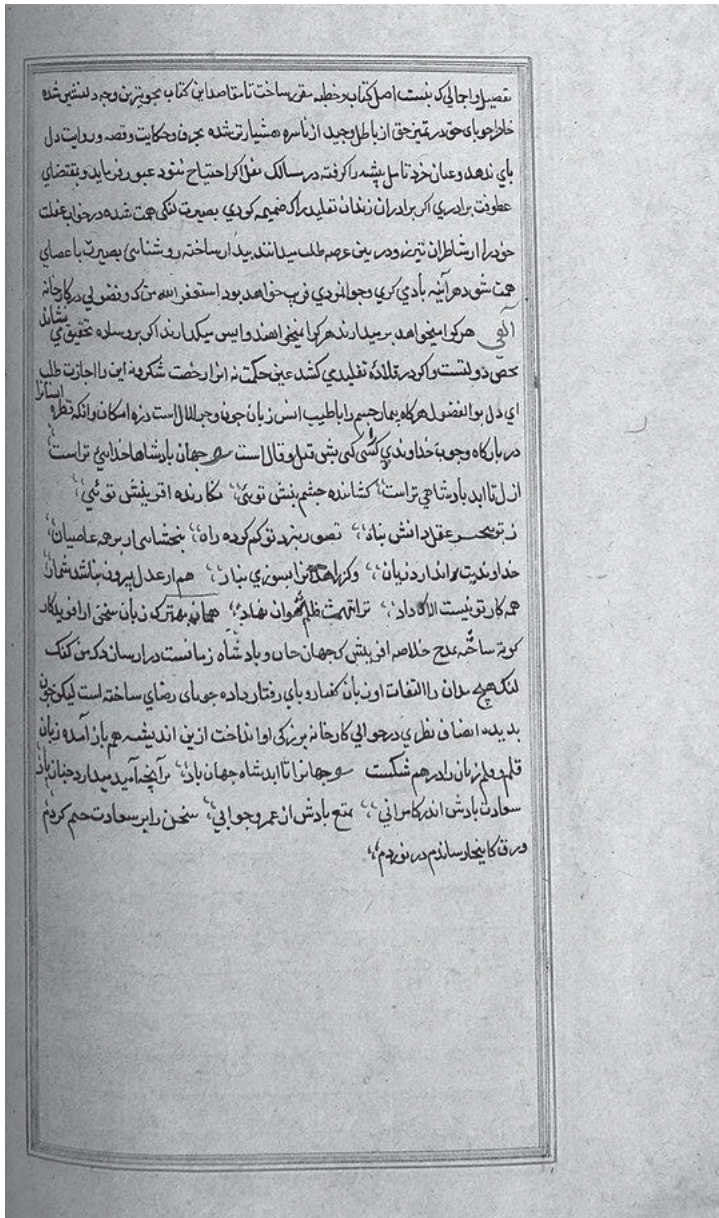 تفصیل و اجمالی که نسبت اصل کتاب و خطبه مقرر ساخت تا مقاصد این کتاب بخوبترین وجه دلنشین شده
خاطر جویای حق در تمیز حق از باطل و جید از ناسره هشیارتر شده بحرف و حکایت و قصه و روایت دل
پای ندهد و عنان خرد تامل پیشه را گرفته در مسالک نقل اگر احتیاج شود عبور فرماید و بمقتضای
عطوفت برادری اگر برادران زندان تقلید را که ضمیمه کوری بصیرت لنگی همت شده در خواب غفلت
خود را از شاطران تیزرو درین عرصه طلب میدانند بیدار ساخته روشناسی بصیرت با عصای
همت شود هر آینه بآدمی کری و جوانمردی قریب خواهد بود استغفر الله من که و فضولی در کارخانه
آلهی هر کرا میخواهد بر میدارند هر کرا نمیخواهند واپس میگذارند اگر بر وساده تحقیق می نشاند
محض دولتست و اگر در قلادهٔ تقلید می کشد عین حکمت نه انرا رخصت شکر و نه این را اجازت طلب
ای دل بوالفضول هرگاه بیمار جسم را با طبیب انس زبان چون و چرا لال است ذره امکان و انکه قطره ایشانرا
در بارگاه وجوب خداوندی کمی بشی قیل و قال است جهان پادشاها خدایی تراست
ازل تا ابد پادشاهی تراست کشاینده چشم بینش تویی نگارنده آفرینش توئی
ز تو عقل دانش پناه تصور بنزد تو کم کرده راه بخشای از بر همه عاصیان
خداوندیت را ندارد زیان وگر ترا بسوزی بنار هم از عدل بیرون نباشد شمار
همه کار تو نیست الا که داد ترا تهمت ظلم نتوان نهاد همان بهترک زبان سخن از آفریدگار
کوته ساخته بمدح خلاصه آفرینش که جهان جان و پادشاه زمانست در ارسان دکر من گنگ
لنگ هیچ مدان را التفات او زبان گفتار و پای رفتار داده جویای رضای ساخته است لیکن چون
بدیده انصاف نظری در حوالی کارخانه بزرگی او انداخت ازین اندیشه هم باز آمده زبان
قلم و قلم زبان را در هم شکست جهانرا تا ابد شاه جهان باد بر آنچه امید میدارد چنان باد
سعادت بادش اندر کامرانی تمتع بادش از عمر و جوانی سخن را بر سعادت ختم کردم
ورق کاینجا رساندم در نوردم